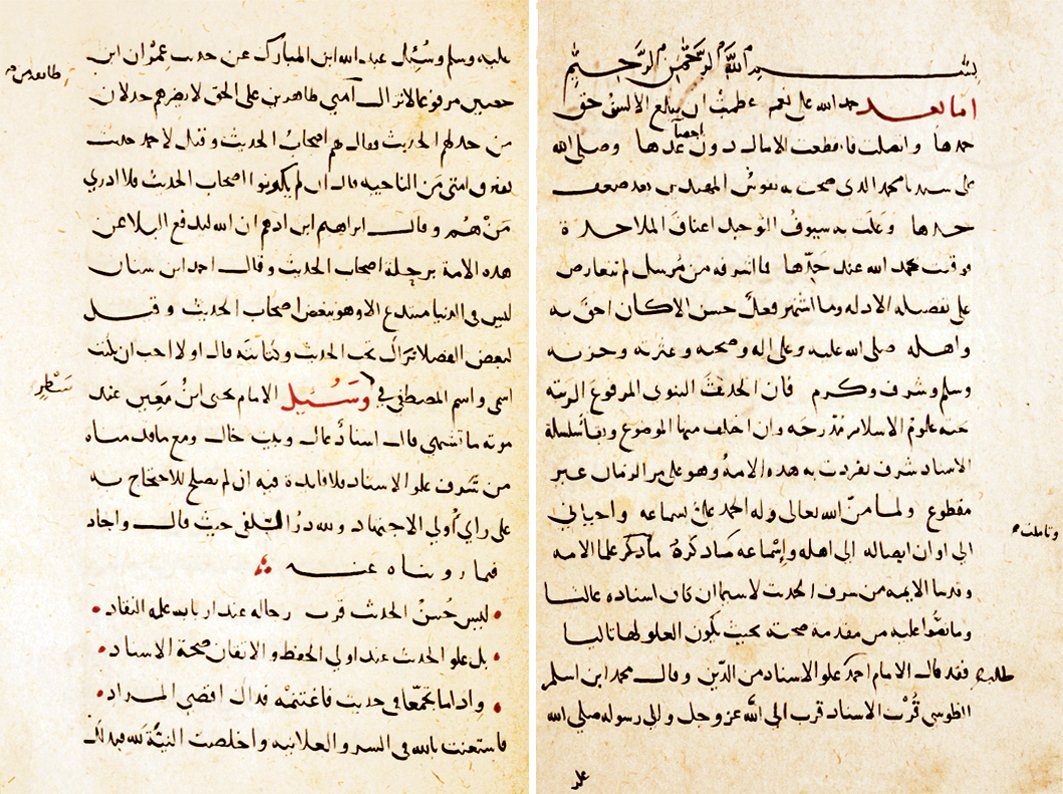 بسم الله الرحمن الرحيم
اما بعد حمد الله على نعم عظمت ان يبلغ الالسن حق
حمدها واتصلت فانقطعت الامال دون احصا عدها وصلى الله
على سيدنا محمد الذي صحت به نفوس المهتدين بعد ضعف
وعلت به سيوف التوحيد اعناق الملاحدة
محمد الله عند حدها فما اشرفه من مرسل لم تتعارض
على تفضيله الادله وما اشتهر فعل حسن الا كان احق به
واهله صلى الله عليه وعلى اله وصحبه وعترته وحزبه
وسلم وشرف وكرم فان الحديث النبوي المرفوع الرتبه
علوم الاسلام وان اختلف منها الموضوع وبقا سلسلة
الاسناد شرف تفردت به هذه الامة وهو على مر الزمان غير
مقطوع ولما من الله تعالى وله الحمد علي بسماعه واحياني
الى اوان ايصاله الى اهله وإسماعه ما ذكر علما الامه
الايمه من شرف الحديث لا سيما ان كان اسناده عاليا
وما نصوا عليه من مقدمه صحته بحيث يكون العلو لها تاليا
فقد قال الامام احمد طلب علو الاسناد من الدين وقال محمد ابن اسلم
الطوسي قرب الاسناد قرب الى الله عز وجل والى رسوله صلى الله
عليه
وتاملت
عليه وسلم وسئل عبد الله ابن المبارك عن حديث عمران ابن
حصين مرفوعا لا تزال طايفة من امتي ظاهرين على الحق لا يضرهم خذلان
من خذلهم الحديث فقال هم اصحاب الحديث وقيل لاحمد حديث
من الناحيه قال ان لم يكونوا اصحاب الحديث فلا ادري
من هم وقال ابراهيم ابن ادهم ان الله ليدفع البلا عن
هذه الامة برحلة اصحاب الحديث وقال احمد ابن سنان
ليس في الدنيا مبتدع الا وهو يبغض اصحاب الحديث وقيل
لبعض الفضلا نراك تحب الحديث وكتابته قال اولا احب ان يثبت
اسمي واسم المصطفى في سطر وسئل الامام يحيى ابن معين عند
موته ما تشتهي قال اسناد عال وبيت خال ومع ما قدمناه
من شرف علو الاسناد فلا فايدة فيه ان لم يصلح للاحتجاج به
على راي أولي الاجتهاد ولله در السلفي حيث قال واجاد
فيما رويناه عنه
ليس حسن الحديث قرب رجاله عند ارباب علمه النقاد
بل علو الحديث عند اولي الحفظ والاتقان صحة الاسناد
واذا ما تجمعا في حديث فاغتنمه فذاك اقصى المراد
فاستعنت بالله في السر والعلانيه واخلصت النية لله